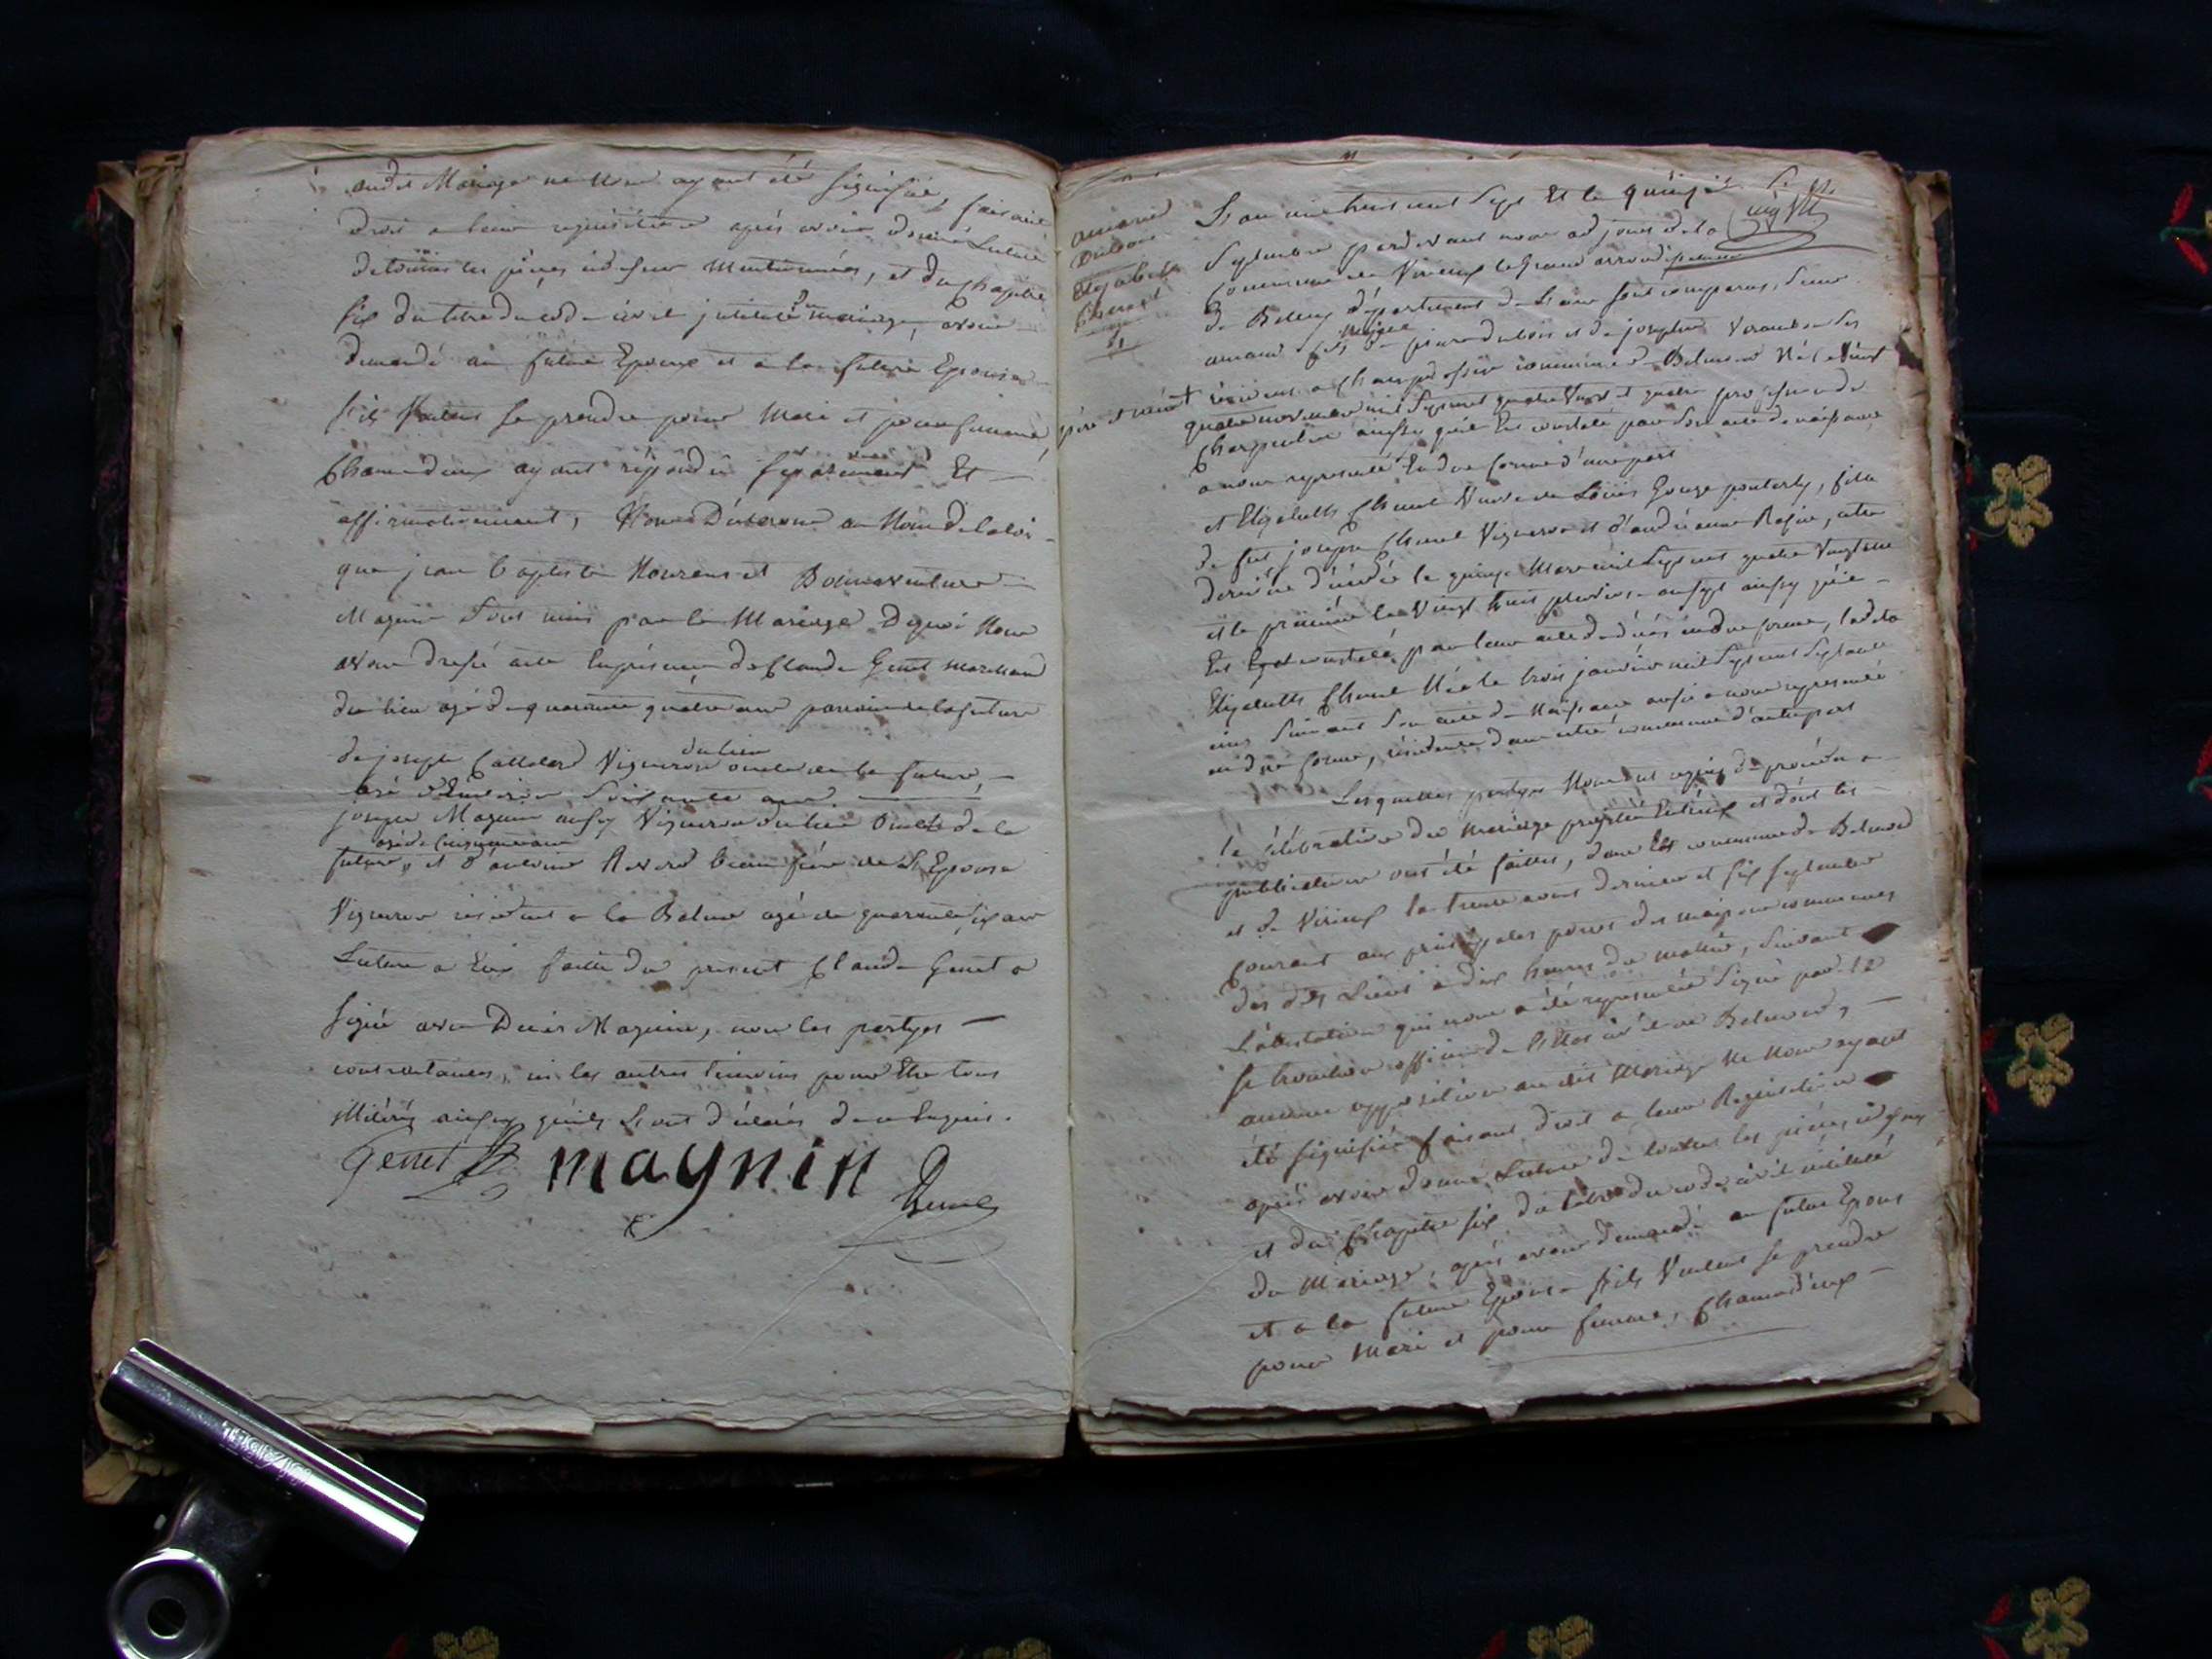 audit Mariage ne Nous ayant été signifiée, faisant
droit a leur requisition après avoir donné Lecture
de toutes les pièces cidessus Mentionnées, et du Chapitre
six du titre du code civil intitulé du mariage, avons
demandé au futur Epoux et a la future Epouse
s'ils veulent se prendre pour Mari et pour femme
Chacun d'eux ayant répondu séparément Et
affirmativement, Nous Déclarons au Nom de la loi
que jean baptiste et Bonaventure
Magnin sont unis par le Mariage De quoi Nous
avons dressé acte En présence de Claude Genet marchand
du lieu agé de quarante quatre ans de la future
de joseph Vigneron du lieu oncle de la future,
agé d'Environ soixante ans
joseph Magnin aussy Vigneron du lieu oncle de la
future, agé de cinquante ans et d'antoine beau frère de l'Epouse
Vigneron résident a la Balme agé de quarante six ans
Lecture a Eux faitte du présent Claude Genet a
signé avec Denis Magnin, non les partyes
contractantes, ni les autres témoins pour Etre tous
illitérés ainsy qu'ils L'ont déclarés de ce Enquis.
Genet magnin
amand
Dubois
Elizabeth
Chenel
L'an mil huit cent Sept Et le quinze
Septembre pardevant nous adjoint de la
commune de Virieux le Grand arrondissement
de Belley département de L'ain sont comparus, Sieur
amand fils majeur de pierre dubois et de josephte
père et mère résident a commune de Belmont Né le Vingt
quatre novembre mil Sept cent quatre Vingt et quatre profession de
Charpentier ainsy qu'il Est constaté par Son acte de naissance
a nous représenté En due forme d'une part
et Elizabeth Chenel Veuve de Loüis Gouge , fille
de feu joseph Chenel Vigneron et d'andréanne , cette
dernière décédée le quinze Mars mil Sept cent quatre Vingt
et le premier le Vingt huit pluviose an sept ainsy qu'il
Est constaté par leur acte de décès en due forme, ladite
Elizabeth Chenel Née le trois janvier mil Sept cent Septante
cinq suivant Son acte de Naissance aussi a nous représenté
en due forme, résidente dans cette commune d'autre part
Lesquelles partyes Nous ont requis de procéder a
la célébration du mariage projetté Entr'eux et dont les
publications ont été faittes, dans les communes de Belmont
et de Virieux le trente aout dernier et six septembre
courant aux principales portes des maisons communes
des dits Lieux a dix heures du matin, suivant
L'attestation qui nous a été représentée Signé par le
officier de l'Etat civil de Belmont,
aucune opposition au dit Mariage Ne Nous ayant
été signifiée faisant droit a leur Requisition
après avoir donné Lecture de toutes les pièces cidessus
et du Chapitre six du titre du code civil intitulé
du Mariage, après avoir demandé au futur Epoux
et a la future Epouse s'ils Veulent se prendre
pour Mari et pour femme, Chacun d'eux